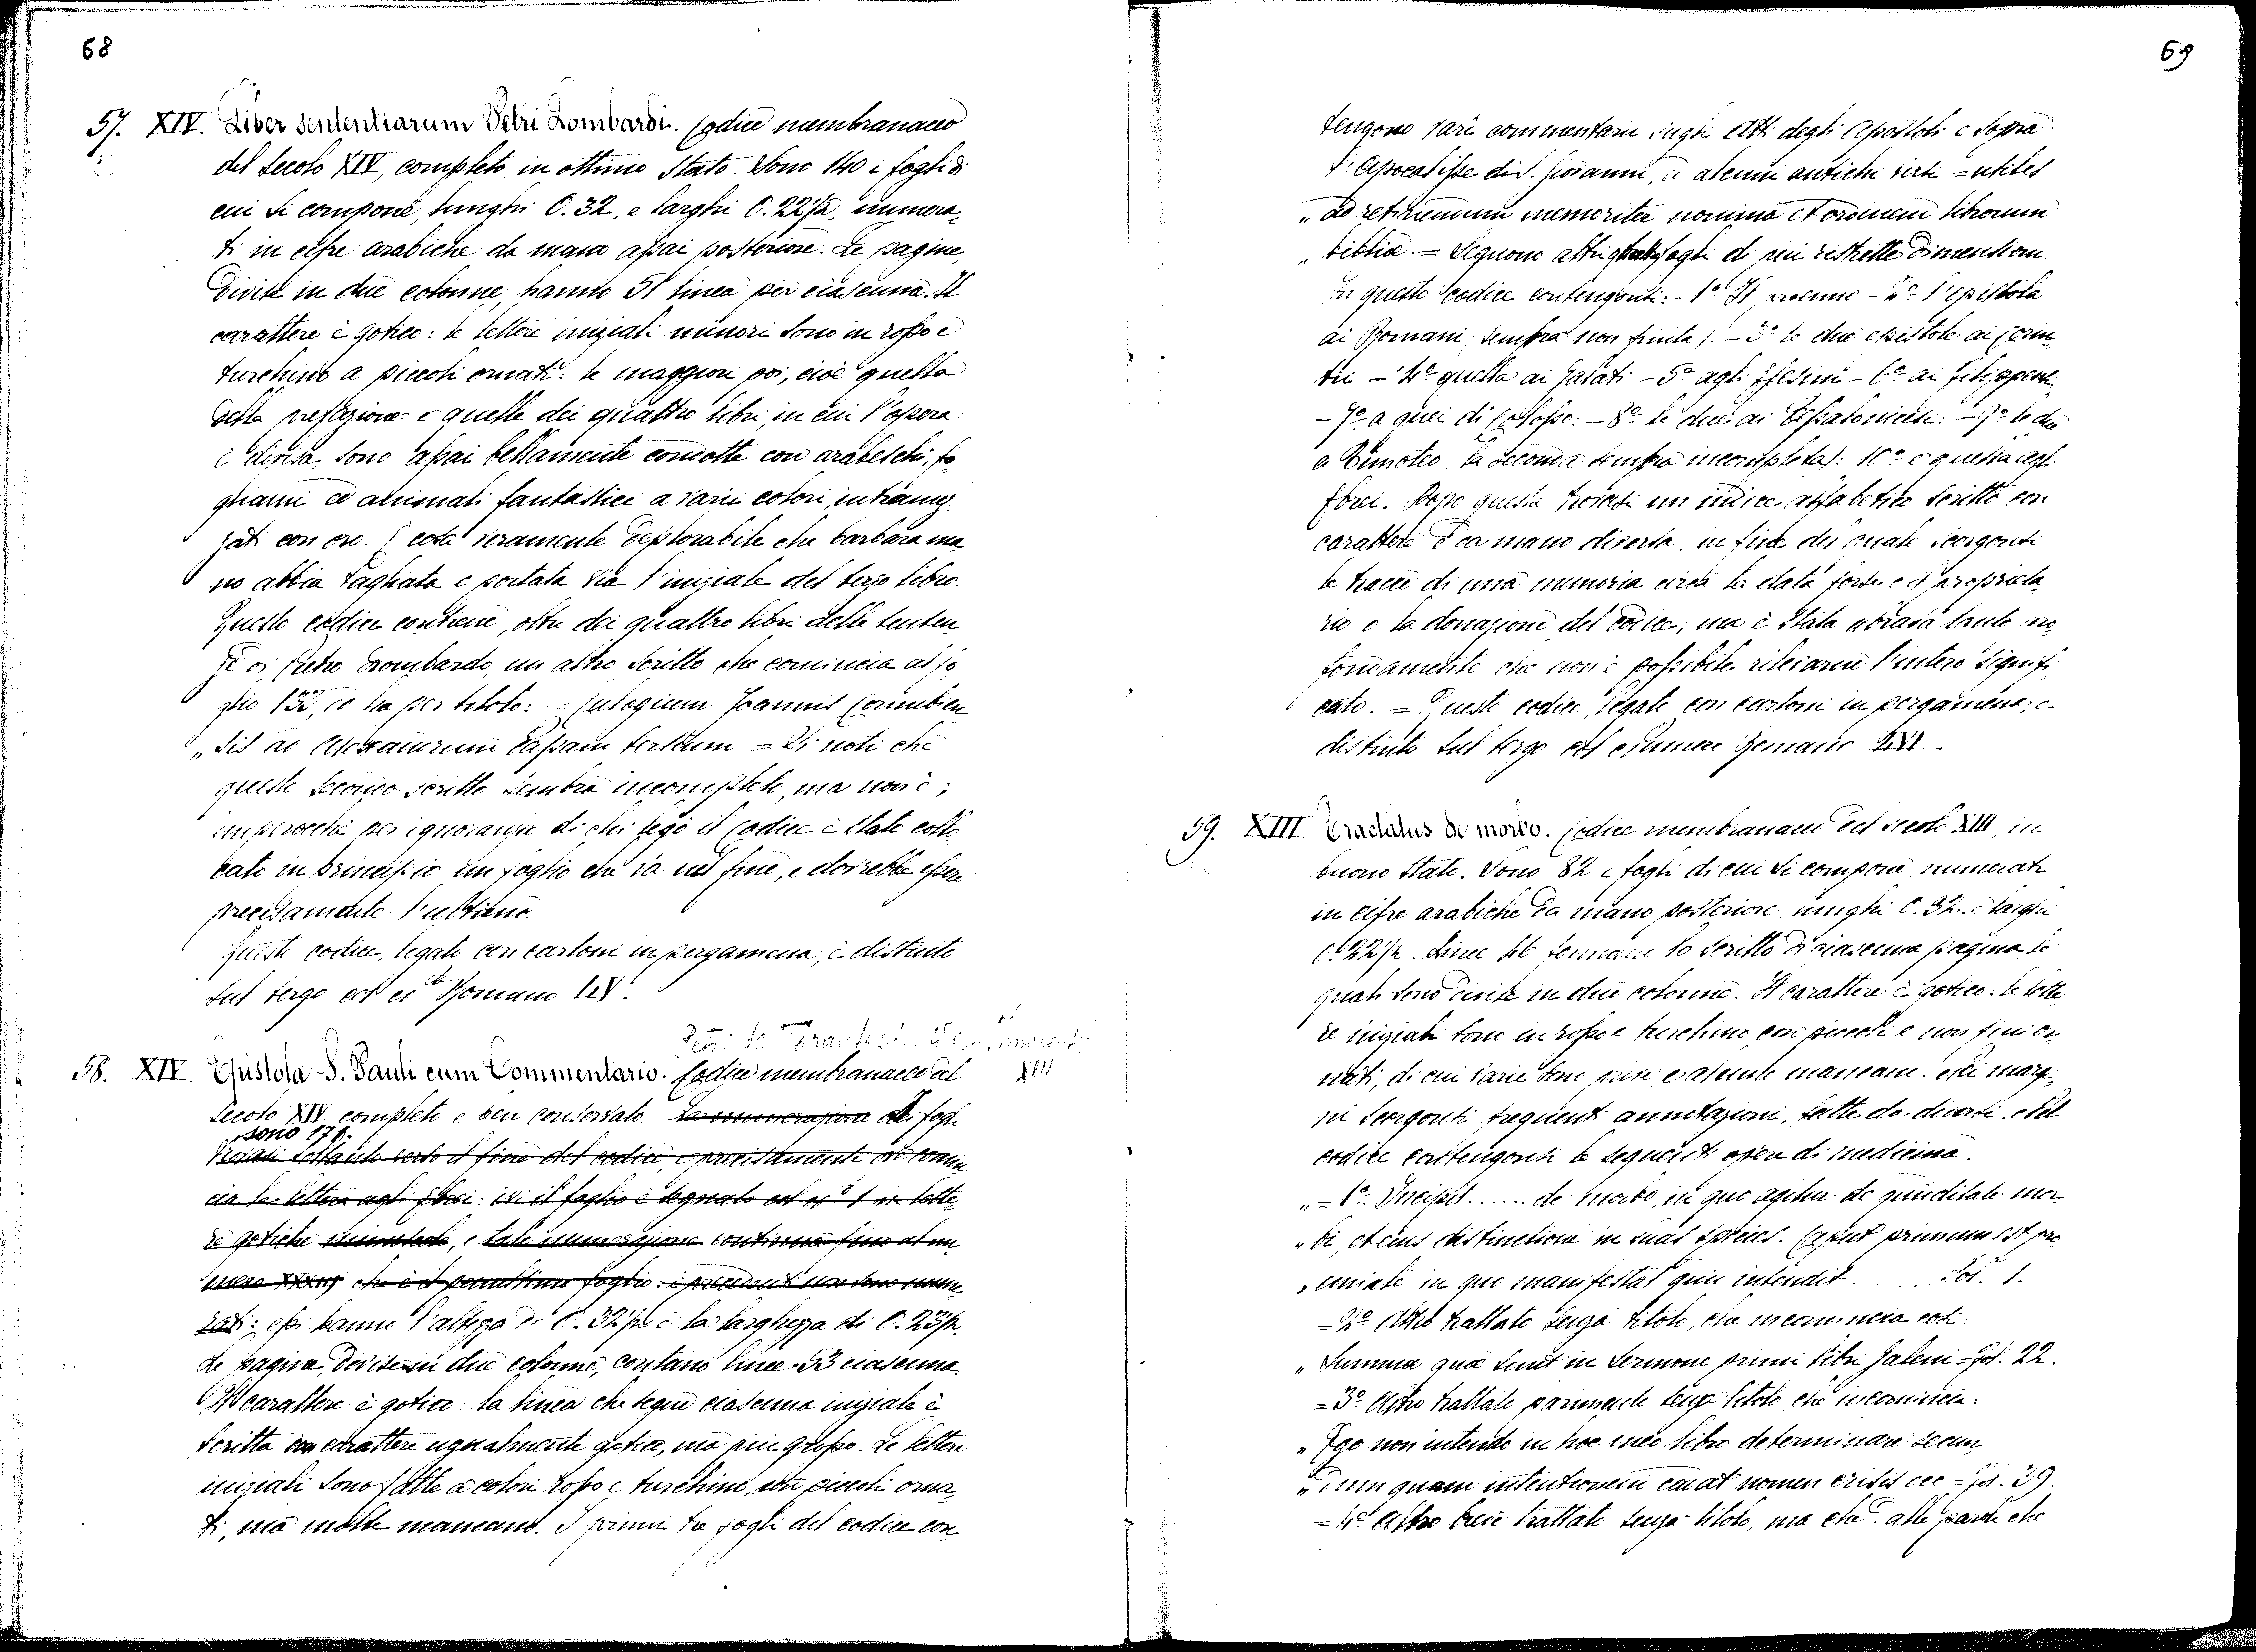 68
57. XIV. Liber sententiarum Petri Lombardi. Codice membranaceo
del secolo XIV, completo, in ottimo stato. Sono 140 i fogli di
cui si compone, lunghi C. 32, e larghi C. 22½, numera,
ti in cifre arabiche da mano assai posteriore. Le pagine,
divise in due colonne, hanno 51 linea per ciascuna. Il
carattere è gotico: le lettere iniziali minori sono in rosso e
turchino a piccoli ornati: le maggiori poi, cioè quella
della prefazione e quelle dei quattro libri, in cui l'opera
è divisa, sono assai bellamente condotte con arabeschi, fo
gliami ed animali fantastici a varii colori, intramez,
zati con oro. È cosa veramente deplorabile che barbara ma
no abbia tagliata e portata via l'iniziale del terzo libro.
Questo codice contiene, oltre dei quattro libri delle senten,
ze di Pietro Lombardo, un altro scritto che comincia al fo
glio 133, ed ha per titolo: = Eulogium Joannis Cornubien
„ sis ad Alexandrum Papam tertium = Si noti che
questo secondo scritto sembra incompleto, ma non è;
imperocchè per ignoranza di chi legò il codice è stato collo
cato in principio un foglio che va nel fine, e dovrebbe essere
precisamente l'ultimo.
Questo codice, legato con cartoni in pergamena, è distinto
sul tergo col nº Romano LIV.
Petri de Tarantasia
58. XIV. Epistola S. Pauli cum Commentario. Codice membranaceo del
XIII
secolo XIV completo e ben conservato. La numerazione dei fogli
sono 178.
trovasi soltanto verso il fine del codice, e precisamente ove comin
cia la lettera agli Ebrei: ivi il foglio è segnato col nº 1 in lette,
re gotiche minuscole, e tale numerazione continua fino al nu
mero XXXIIJ che è il penultimo foglio: i precedenti non sono nume
rati: essi hanno l'altezza di C. 32½ e la larghezza di C. 23½.
Le pagine, divise in due colonne, contano linee 53 ciascuna.
Il carattere è gotico: la linea che segue ciascuna iniziale è
scritta con carattere ugualmente gotico, ma più grosso. Le lettere
iniziali sono fatte a colori rosso e turchino, con piccoli orna,
ti, ma molte mancano. I primi tre fogli del codice con
69
tengono varii commentarii sugli Atti degli Apostoli e sopra
l'Apocalisse di S. Giovanni, ed alcuni antichi versi = utiles
„ ad retinendum memoriter nomina et ordinem librorum
„ bibliæ. = Seguono altri quattro fogli di più ristrette dimensioni.
In questo codice contengonsi: - 1º Il proemio - 2º l'epistola
ai Romani (sembra non finita). - 3º le due epistole ai Corin,
tii - 4º quella ai Galati - 5º agli Efesini - 6º ai Filippensi
- 7º a quei di Colosso: - 8º le due ai Tessalonicesi: - 9º le due
a Timoteo (la seconda sembra incompleta): 10º e quella agli
Ebrei. Dopo questa trovasi un indice alfabetico scritto con
carattere e da mano diversa, in fine del quale scorgonsi
le tracce di una memoria circa la data forse e il proprieta,
rio o la donazione del codice; ma è stata abrasa tanto mo
tornamente che non è possibile rilevarne l'intero signifi,
cato. = Questo codice, legato con cartoni in pergamena, è
distinto sul tergo col numero Romano LXI.
59. XIII Tractatus de morbo. Codice membranaceo del secolo XIII, in
buono stato. Sono 82 i fogli di cui si compone numerati
in cifre arabiche da mano posteriore lunghi C. 32. e larghi
C. 22½. Linee 46 formano lo scritto di ciascuna pagina, le
quali sono divise in due colonne. Il carattere è gotico: le lette
re iniziali sono in rosso e turchino, con piccoli e non fini or,
nati, di cui varie sono prive e alcune mancano. Nei margi,
ni scorgonsi frequenti annotazioni, fatte da diversi. Nel
codice contengonsi le seguenti opere di medicina.
„ = 1º. Incipit ...... de morbo, in quo agitur de quiditate mor
„ bi, et eius distinctione in suas species. Caput primum est pro
„ emiale in quo manifestat quid intendit .... Fol. 1.
= 2º Altro trattato senza titolo, che incomincia così:
„ Summa quæ sunt in sermone primi libri Galeni = Fol. 22.
= 3º Altro trattato parimente senza titolo che incomincia:
„ Ego non intendo in hoc meo libro determinare secun,
„ dum quam intentionem cadat nomen crisis ecc = Fol. 39.
= 4º Altro breve trattato senza titolo, ma che alle parole che